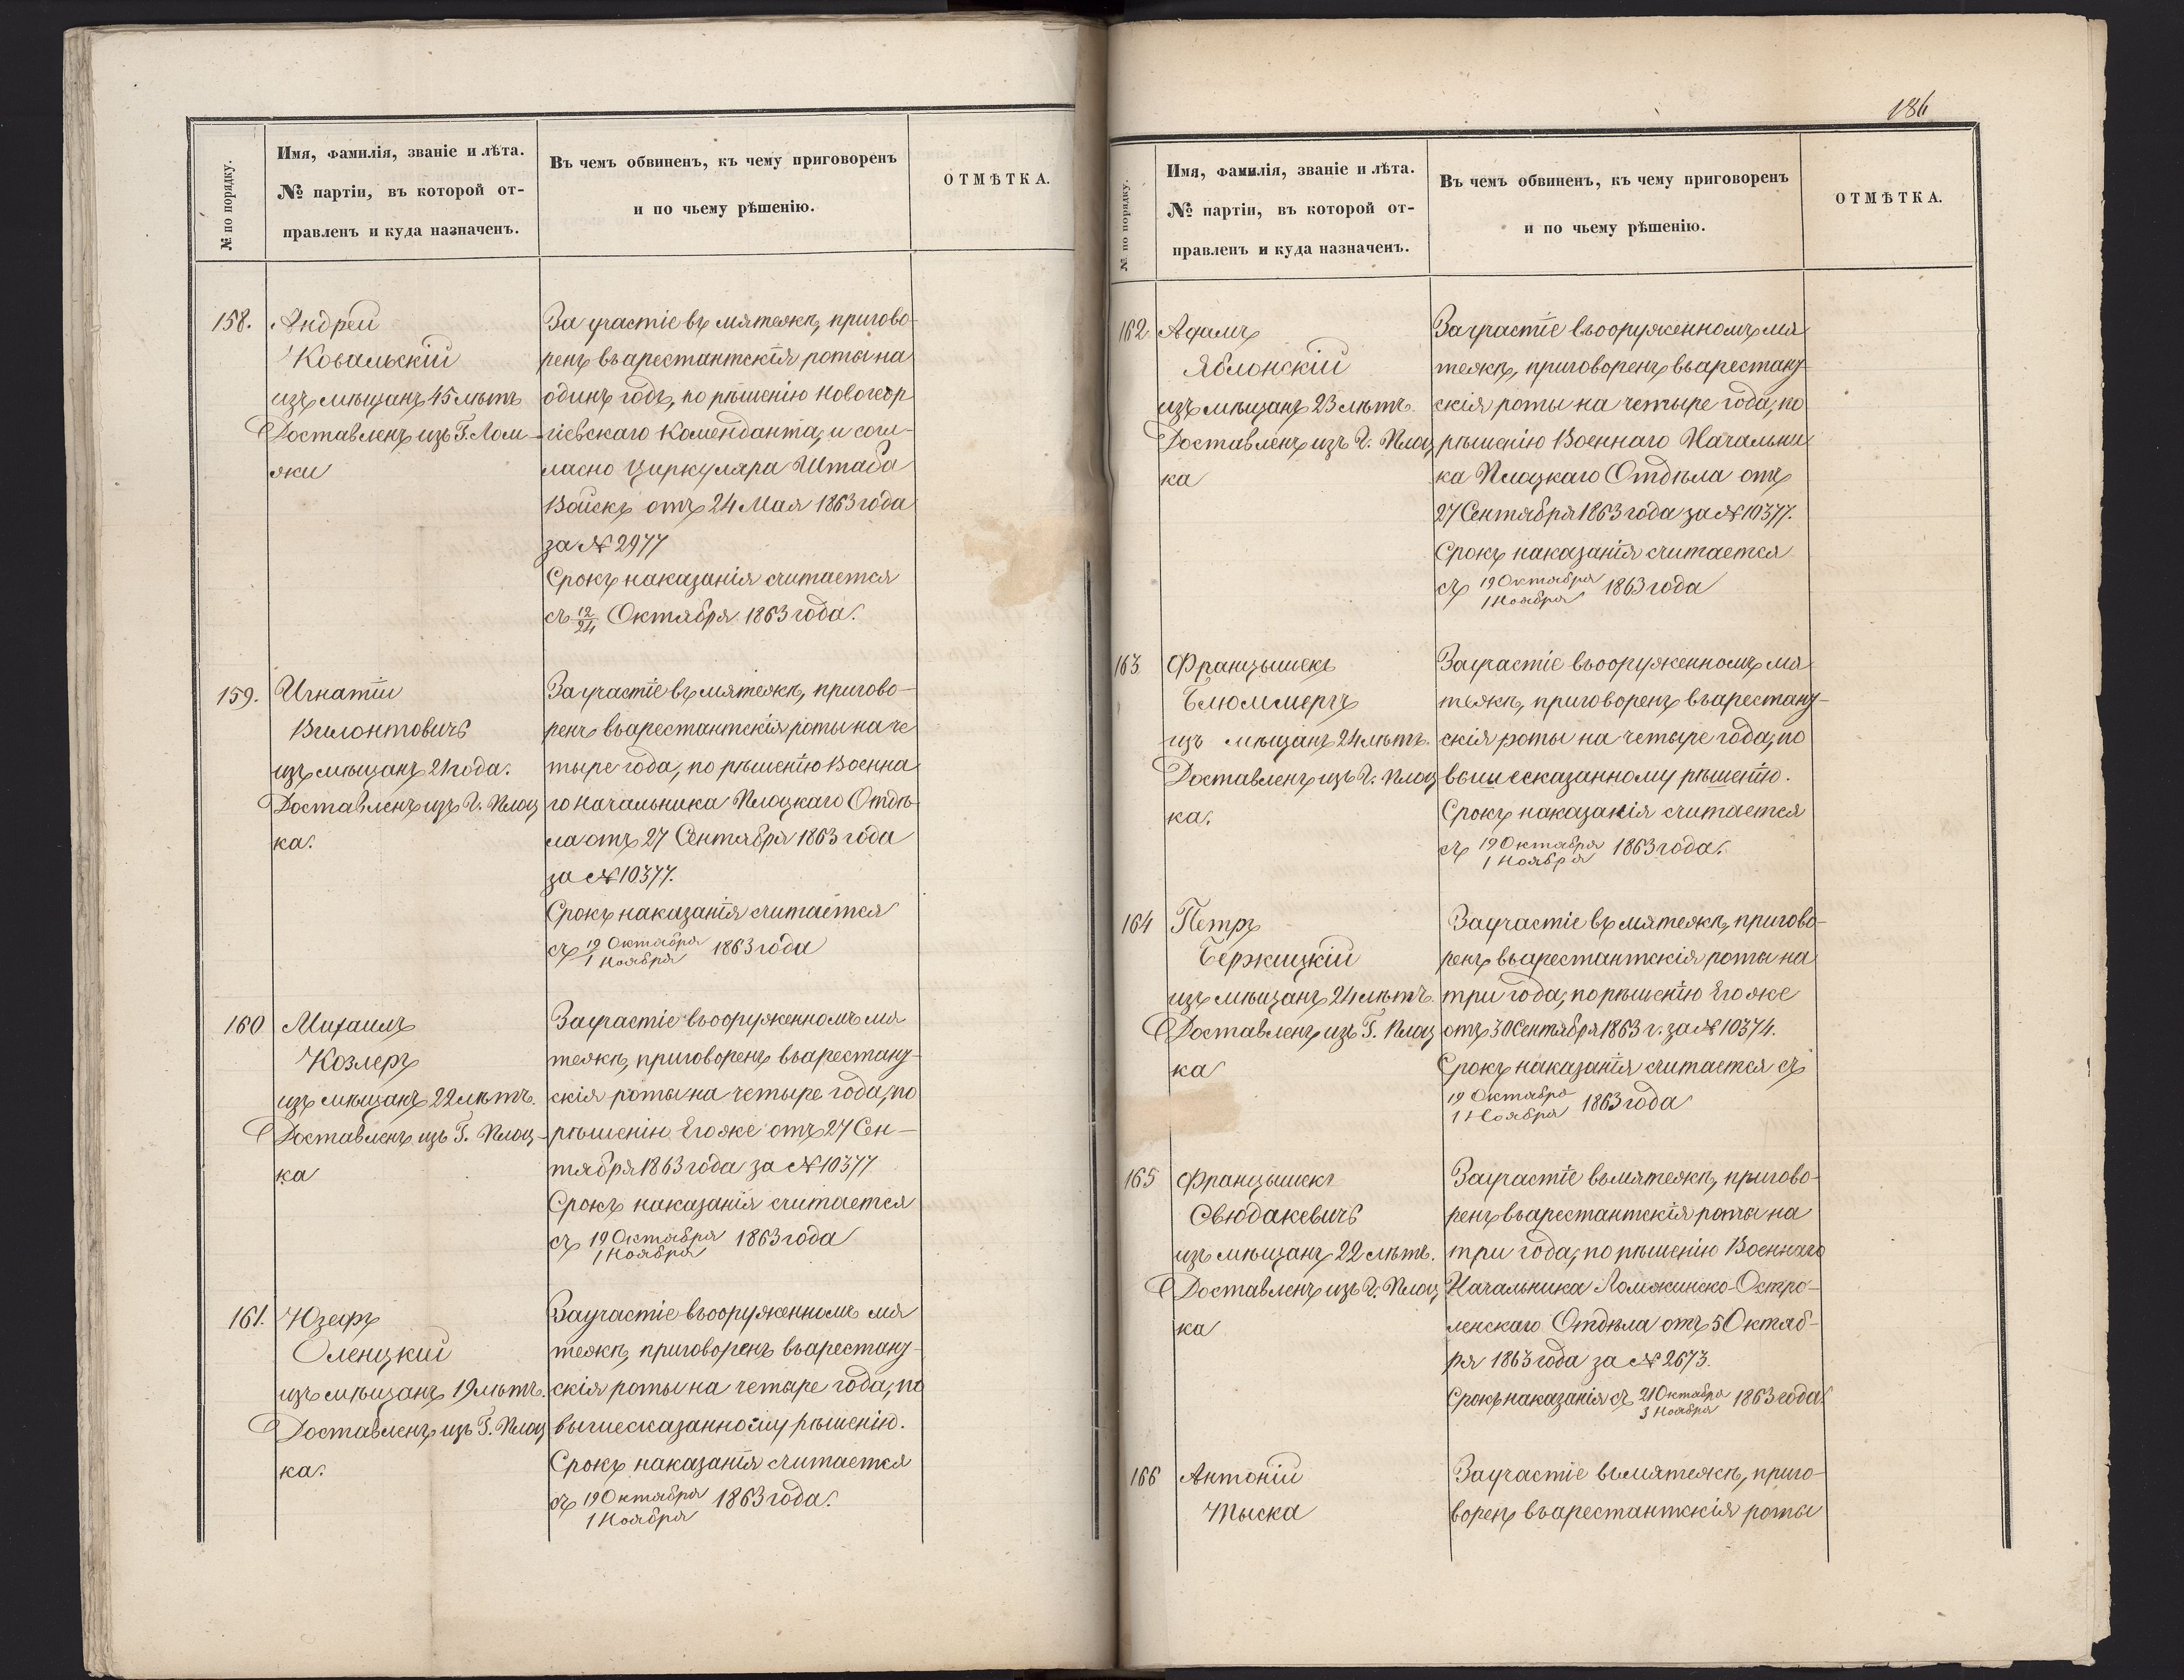 № по порядку.
Имя, Фамилія, званіе и лѣта.
№ партіи, въ которой от-
правленъ и куда назначенъ.
Въ чемъ обвиненъ, къ чему приговоренъ
и по чьему рѣшенію.
ОТМѢТКА.
158.
Андрей
Ковальскій
изъ мѣщанъ 45 лѣтъ
Доставленъ изъ Г. Лом-
жи
За участіе въ мятежѣ, пригово-
ренъ въ арестантскія роты на
одинъ годъ, по рѣшенію Новогеор
гіевскаго Коменданта, и согл-
ласно Циркуляра Штаба
Войскъ отъ 24 Мая 1863 года
за № 2977
Срокъ наказанія считается
съ 12/24 Октября 1863 года.
159.
Игнатій
Вилонтовичъ
изъ мѣщанъ 21 года.
Доставленъ изъ Г. Плоц
ка.
За участіе въ мятежѣ, пригово-
ренъ въ арестантскія роты на че
тыре года, по рѣшенію Военна
го Начальника Плоцкаго Отдѣ-
ла отъ 27 Сентября 1863 года
за № 10377.
Срокъ наказанія считается
съ 19 Октября / 1 Ноября 1863 года
160
Михаилъ
Козлеръ
изъ мѣщанъ 22 лѣтъ.
Доставленъ изъ Г. Плоц-
ка
За участіе въ вооруженномъ мя
тежѣ, приговоренъ въ арестант-
скія роты на четыре года, по
рѣшенію Его же отъ 27 Сен-
тября 1863 года за № 10377
Срокъ наказанія считается
съ 19 Октября / 1 Ноября 1863 года
161.
Юзефъ
Оленцкій
изъ мѣщанъ 19 лѣтъ.
Доставленъ изъ Г. Плоц
ка.
За участіе въ вооруженномъ мя
тежѣ, приговоренъ въ арестант-
скія роты на четыре года, по
вышесказанному рѣшенію.
Срокъ наказанія считается
съ 19 Октября / 1 Ноября 1863 года.
186
№ по порядку.
Имя, Фамилія, званіе и лѣта.
№ партіи, въ которой от-
правленъ и куда назначенъ.
Въ чемъ обвиненъ, къ чему приговоренъ
и по чьему рѣшенію.
ОТМѢТКА.
162
Адамъ
Яблонскій
изъ мѣщанъ 23 лѣтъ.
Доставленъ изъ Г. Плоц
ка
За участіе въ вооруженномъ мя
тежѣ, приговоренъ въ арестант-
скія роты на четыре года, по
рѣшенію Военнаго Начальни
ка Плоцкаго Отдѣла отъ
27 Сентября 1863 года за № 10377.
Срокъ наказанія считается
съ 19 Октября / 1 Ноября 1863 года
163
Францышекъ
Блюммеръ
изъ мѣщанъ 24 лѣтъ.
Доставленъ изъ Г. Плоц
ка.
За участіе въ вооруженномъ мя
тежѣ, приговоренъ въ арестант-
скія роты на четыре года, по
вышесказанному рѣшенію.
Срокъ наказанія считается
съ 19 Октября / 1 Ноября 1863 года.
164
Петръ
Бержицкій
изъ мѣщанъ 24 лѣтъ.
Доставленъ изъ Г. Плоц
ка
За участіе въ мятежѣ, пригово-
ренъ въ арестантскія роты на
три года, по рѣшенію Его же
отъ 30 Сентября 1863 г. за № 10374.
Срокъ наказанія считается съ
19 Октября / 1 Ноября 1863 года
165
Францышекъ
Свюдакевичъ
изъ мѣщанъ 22 лѣтъ.
Доставленъ изъ Г. Плоц
ка
За участіе въ мятежѣ, пригово-
ренъ въ арестантскія роты на
три года, по рѣшенію Военнаго
Начальника Ломжинско-Остро-
ленскаго Отдѣла отъ 5 Октяб-
ря 1863 года за № 2673.
Срокъ наказанія съ 21 Октября / 3 Ноября 1863 года.
166
Антоній
Тыска
За участіе въ мятежѣ, приго-
воренъ въ арестантскія роты